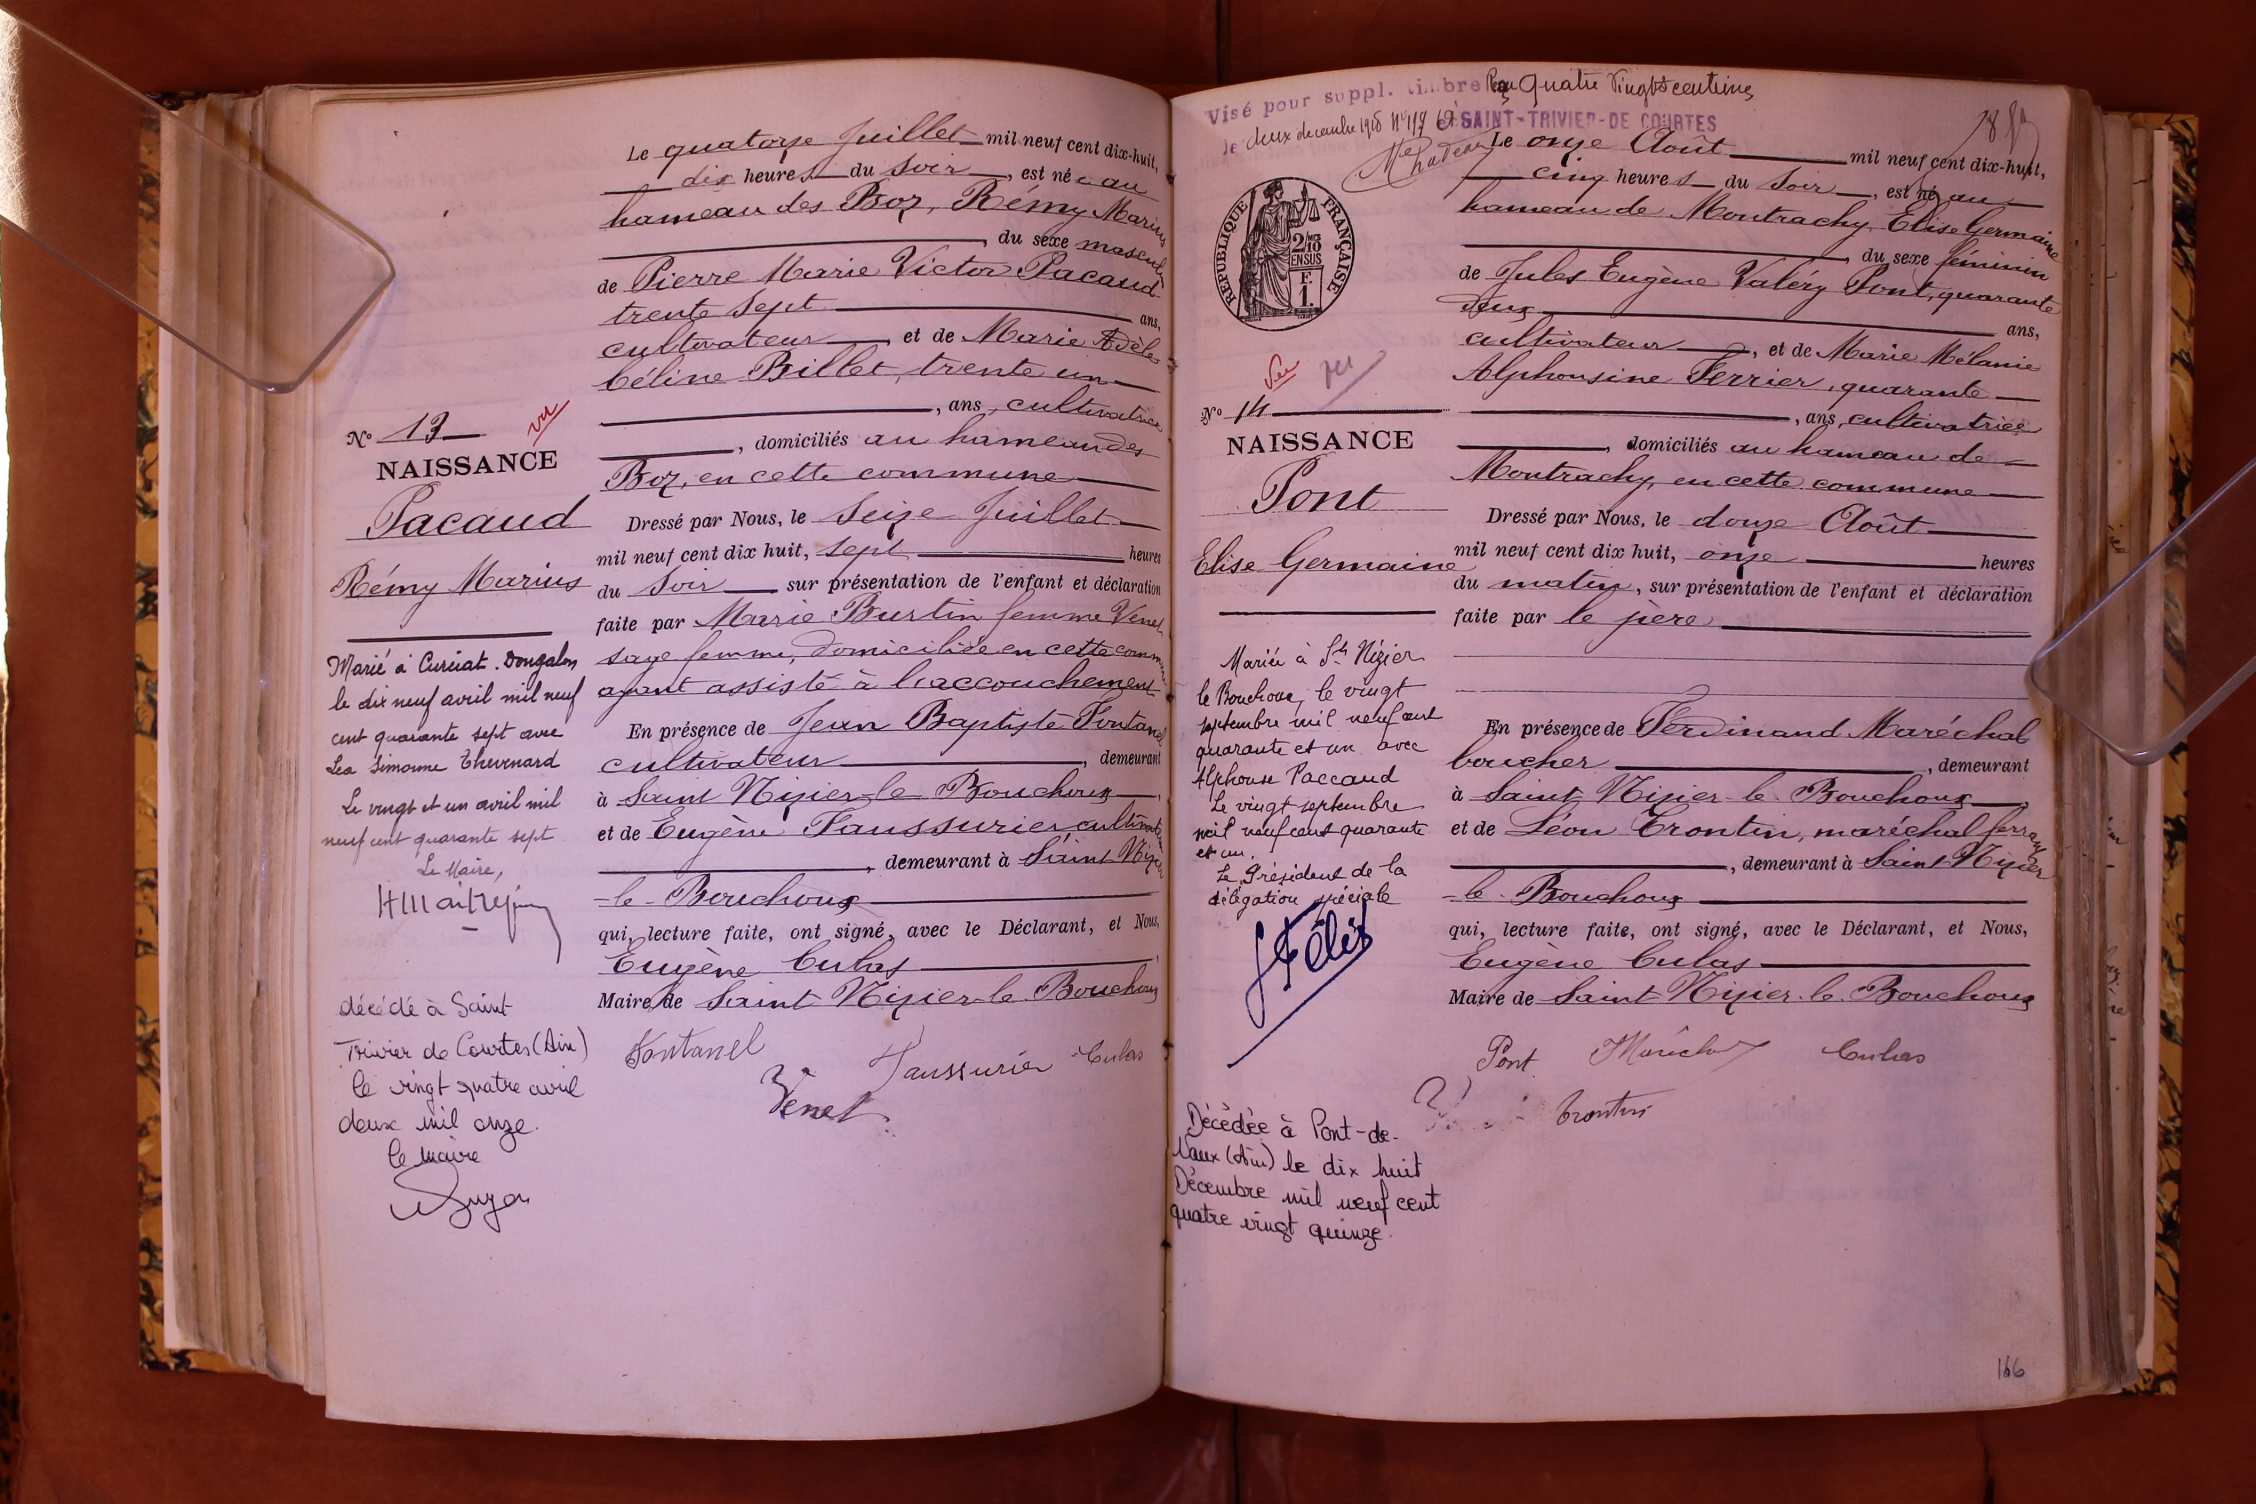 Le quatorze Juillet mil neuf cent dix-huit,
dix heures du soir, est né au
hameau des Boz, Rémy Marius
, du sexe masculin
de Pierre Marie Victor Pacaud
trente sept ans,
cultivateur, et de Marie Adèle
Céline Billet, trente un
, ans, cultivatrice
, domiciliés au hameau des
Boz, en cette commune
Dressé par Nous, le seize Juillet
mil neuf cent dix huit, sept heures
du soir sur présentation de l'enfant et déclaration
faite par Marie Burtin femme Venet
sage femme, domiciliée en cette commune
ayant assisté à l'accouchement
En présence de Jean Baptiste Fontanel
cultivateur, demeurant
à Saint Nizier-le Bouchoux,
et de Eugène Faussurier cultivateur
, demeurant à Saint Nizier
-le-Bouchoux
qui, lecture faite, ont signé, avec le Déclarant, et Nous,
Eugène Cubas,
Maire de Saint Nizier-le-Bouchoux
Fontanel
Faussurier Cubas
Venet
N° 13
vu
NAISSANCE
Pacaud
Rémy Marius
Marié à Curciat.Dongalon
le dix neuf avril mil neuf
cent quarante sept avec
Léa Simonne Thevenard
Le vingt et un avril mil
neuf cent quarante sept
Le Maire,
décédé à Saint
Trivier de Courtes (Ain)
le vingt quatre avril
deux mil onze.
le maire
Visé pour suppl. timbre Reçu quatre vingts centimes
le deux décembre 1918 N° 117
SAINT-TRIVIER-DE COURTES
REPUBLIQUE FRANÇAISE
2/10
EN SUS
F.
1.
Le onze Août mil neuf cent dix-huit,
cinq heures du soir, est né au
hameau de Montrachy, Elise Germaine
, du sexe feminin
de Jules Eugène Valéry Pont, quarante
deux ans,
cultivateur, et de Marie Mélanie
Alphonsine Ferrier, quarante
, ans, cultivatrice
, domiciliés au hameau de
Montrachy, en cette commune
Dressé par Nous, le douze Août
mil neuf cent dix huit, onze heures
du matin, sur présentation de l'enfant et déclaration
faite par le père
En présence de Ferdinand Maréchal
boucher, demeurant
à Saint Nizier-le-Bouchoux,
et de Léon Trontin, maréchal ferrant
, demeurant à Saint Nizier
-le-Bouchoux
qui, lecture faite, ont signé, avec le Déclarant, et Nous,
Eugène Cubas
Maire de Saint Nizier-le-Bouchoux
Pont Maréchal Cubas
Trontin
Vu vu
N° 14
NAISSANCE
Pont
Elise Germaine
Mariée à St Nizier
le Bouchoux, le vingt
septembre mil neuf cent
quarante et un avec
Alphonse Paccaud
Le vingt septembre
mil neuf cent quarante
et un.
Le Président de la
délégation spéciale
Décédée à Pont-de-
Vaux (Ain) le dix huit
Décembre mil neuf cent
quatre vingt quinze.
166